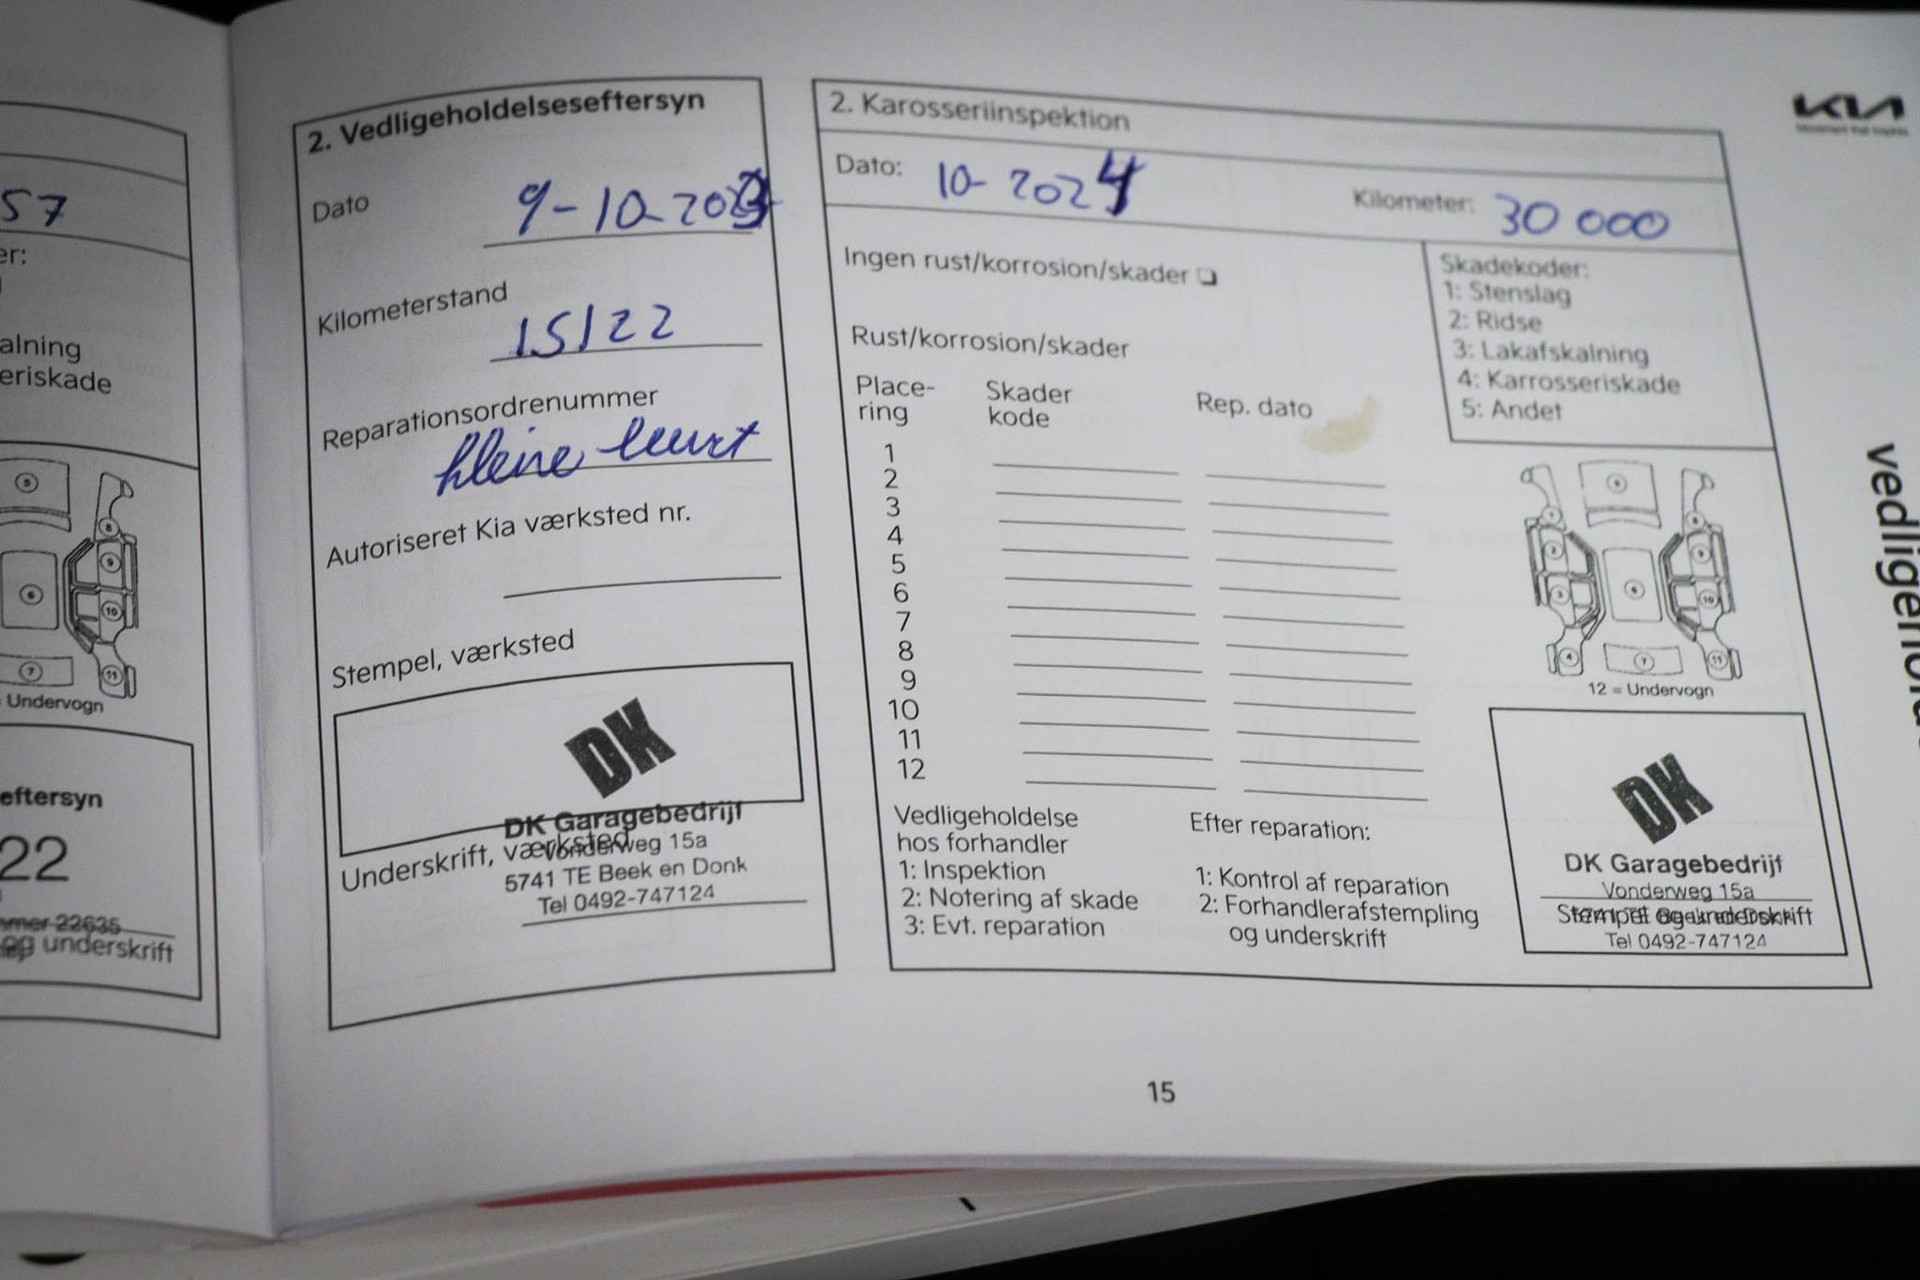 57
er:
alning
eriskade
5
8
9
6
10
7
11
= Undervogn
eftersyn
22
mmer 22635
og underskrift
2. Vedligeholdelseseftersyn
Dato 9-10-2023
Kilometerstand
15122
Reparationsordrenummer
kleine beurt
Autoriseret Kia værksted nr.
Stempel, værksted
DK
DK Garagebedrijf
Vonderweg 15a
Underskrift, værksted
5741 TE Beek en Donk
Tel 0492-747124
2. Karosseriinspektion
Dato: 10-2024 Kilometer: 30 000
Ingen rust/korrosion/skader
Skadekoder:
1: Stenslag
2: Ridse
3: Lakafskalning
4: Karrosseriskade
5: Andet
Rust/korrosion/skader
Place-
ring
Skader
kode
Rep. dato
1
2
3
4
5
6
7
8
9
10
11
12
12 = Undervogn
Vedligeholdelse
hos forhandler
1: Inspektion
2: Notering af skade
3: Evt. reparation
Efter reparation:
1: Kontrol af reparation
2: Forhandlerafstempling
og underskrift
DK
DK Garagebedrijf
Vonderweg 15a
Stempel og underskrift
Tel 0492-747124
KIA
vedligehold
15